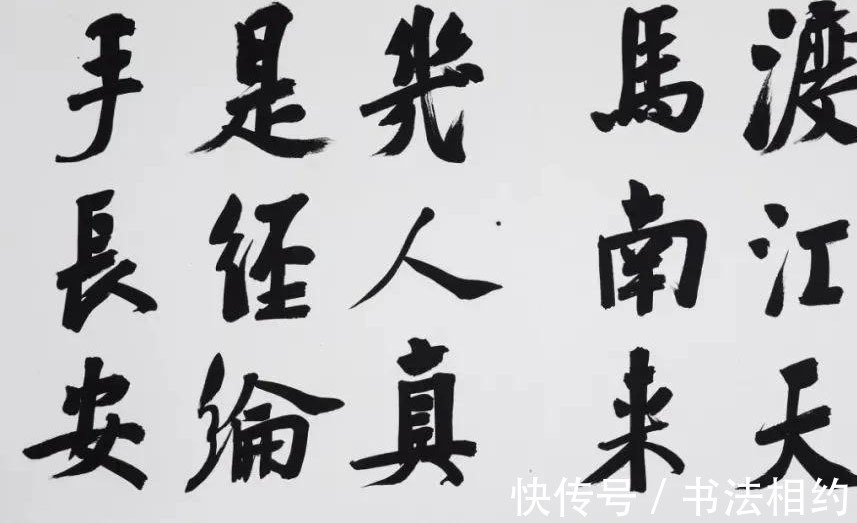 渡江天
馬南来
幾人真
是經綸
手長安
快传号 / 书法相约